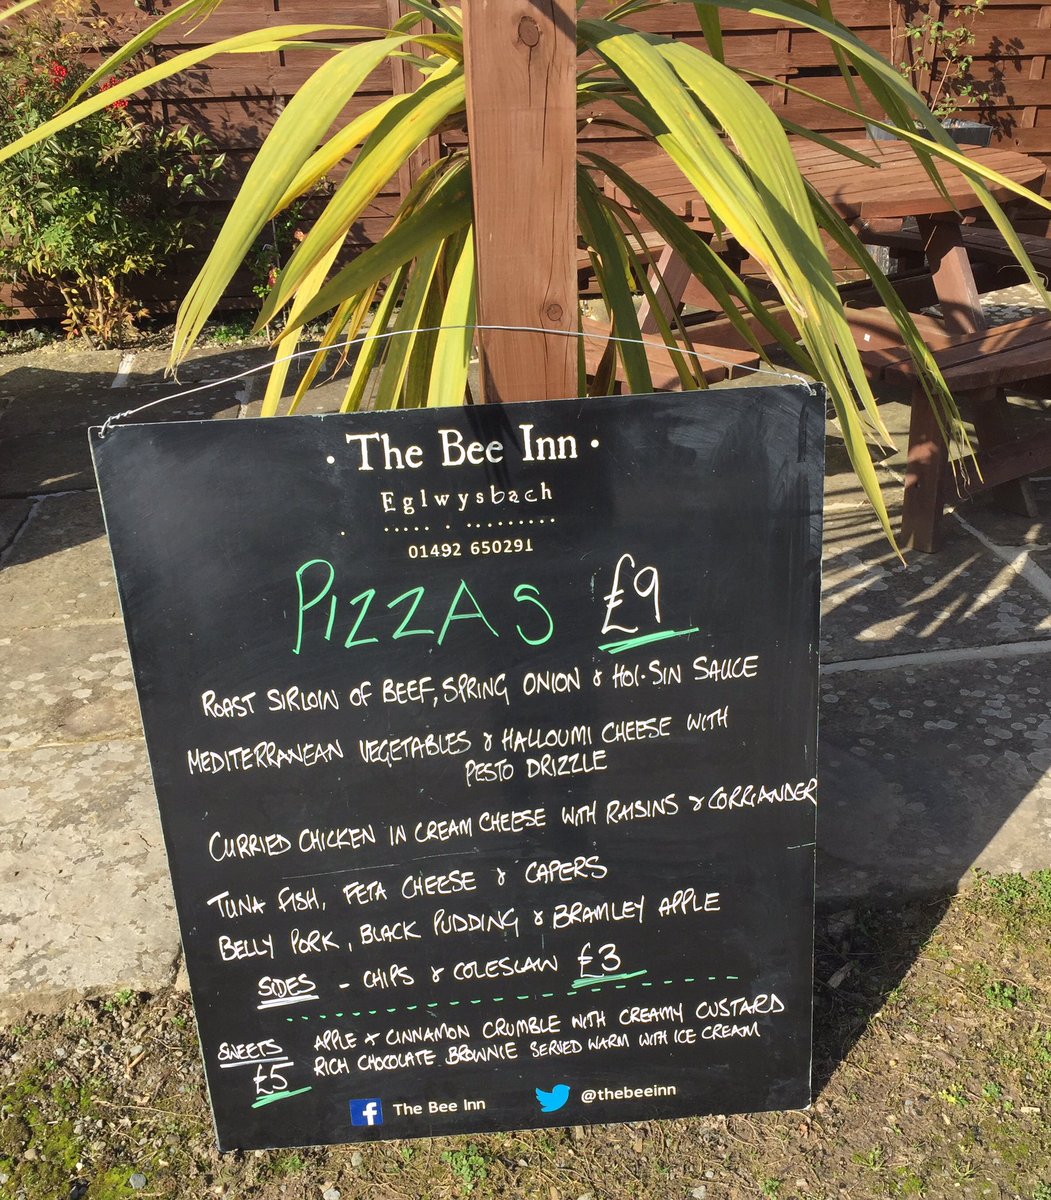 · The Bee Inn ·
Eglwysbach
01492 650291
PIZZAS £9
ROAST SIRLOIN OF BEEF, SPRING ONION & HOI·SIN SAUCE
MEDITERRANEAN VEGETABLES & HALLOUMI CHEESE WITH
PESTO DRIZZLE
CURRIED CHICKEN IN CREAM CHEESE WITH RAISINS & CORRIANDER
TUNA FISH, FETA CHEESE & CAPERS
BELLY PORK, BLACK PUDDING & BRAMLEY APPLE
SIDES - CHIPS & COLESLAW £3
SWEETS
£5
APPLE & CINNAMON CRUMBLE WITH CREAMY CUSTARD
RICH CHOCOLATE BROWNIE SERVED WARM WITH ICE CREAM
f The Bee Inn @thebeeinn